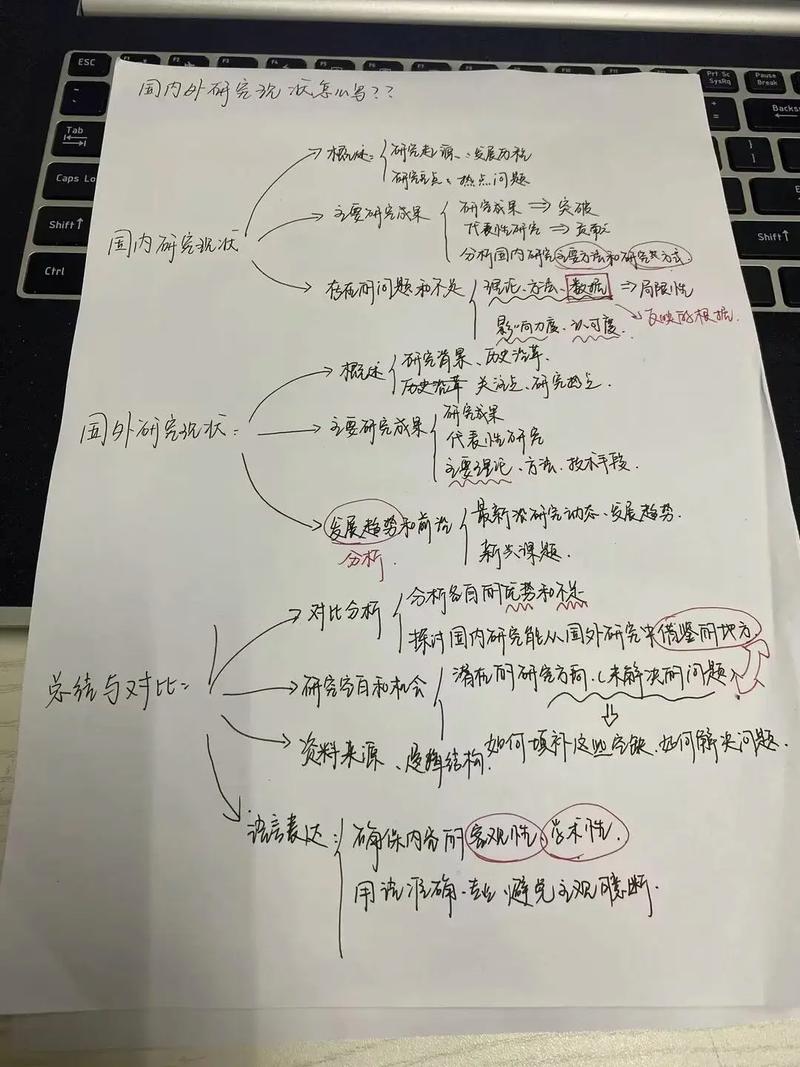 ESC
F1
F2
F3
F4
Prt Sc
SysRq
Pause
Break
Tab
Backs
Caps Lo
Shift
Shift
Ctrl
国内外研究现状怎么写??
国内研究现状
概述: 研究起源、发展历程
研究重点、热点问题
主要研究成果
研究成果 ⇒ 突破
代表性研究 ⇒ 贡献
分析国内研究主要方法和研究方式
存在的问题和不足
理论、方法、数据 ⇒ 局限性
反映的根据.
影响力度、认可度.
国外研究现状:
概述
研究背景、历史沿革
历史沿革 关注点、研究热点
主要研究成果
研究成果
代表性研究
主要理论、方法、技术手段.
发展趋势和前沿
分析.
最新研究动态、发展趋势.
新兴课题.
总结与对比:
对比分析
分析各自的优势和不足
探讨国内研究能从国外研究中借鉴的地方.
研究空白和机会
潜在的研究方向.(未解决的问题)
⇓
如何填补这些空缺.如何解决问题.
资料来源、逻辑结构.
语言表达:
确保内容的客观性、学术性.
用语准确、专业、避免主观臆断.